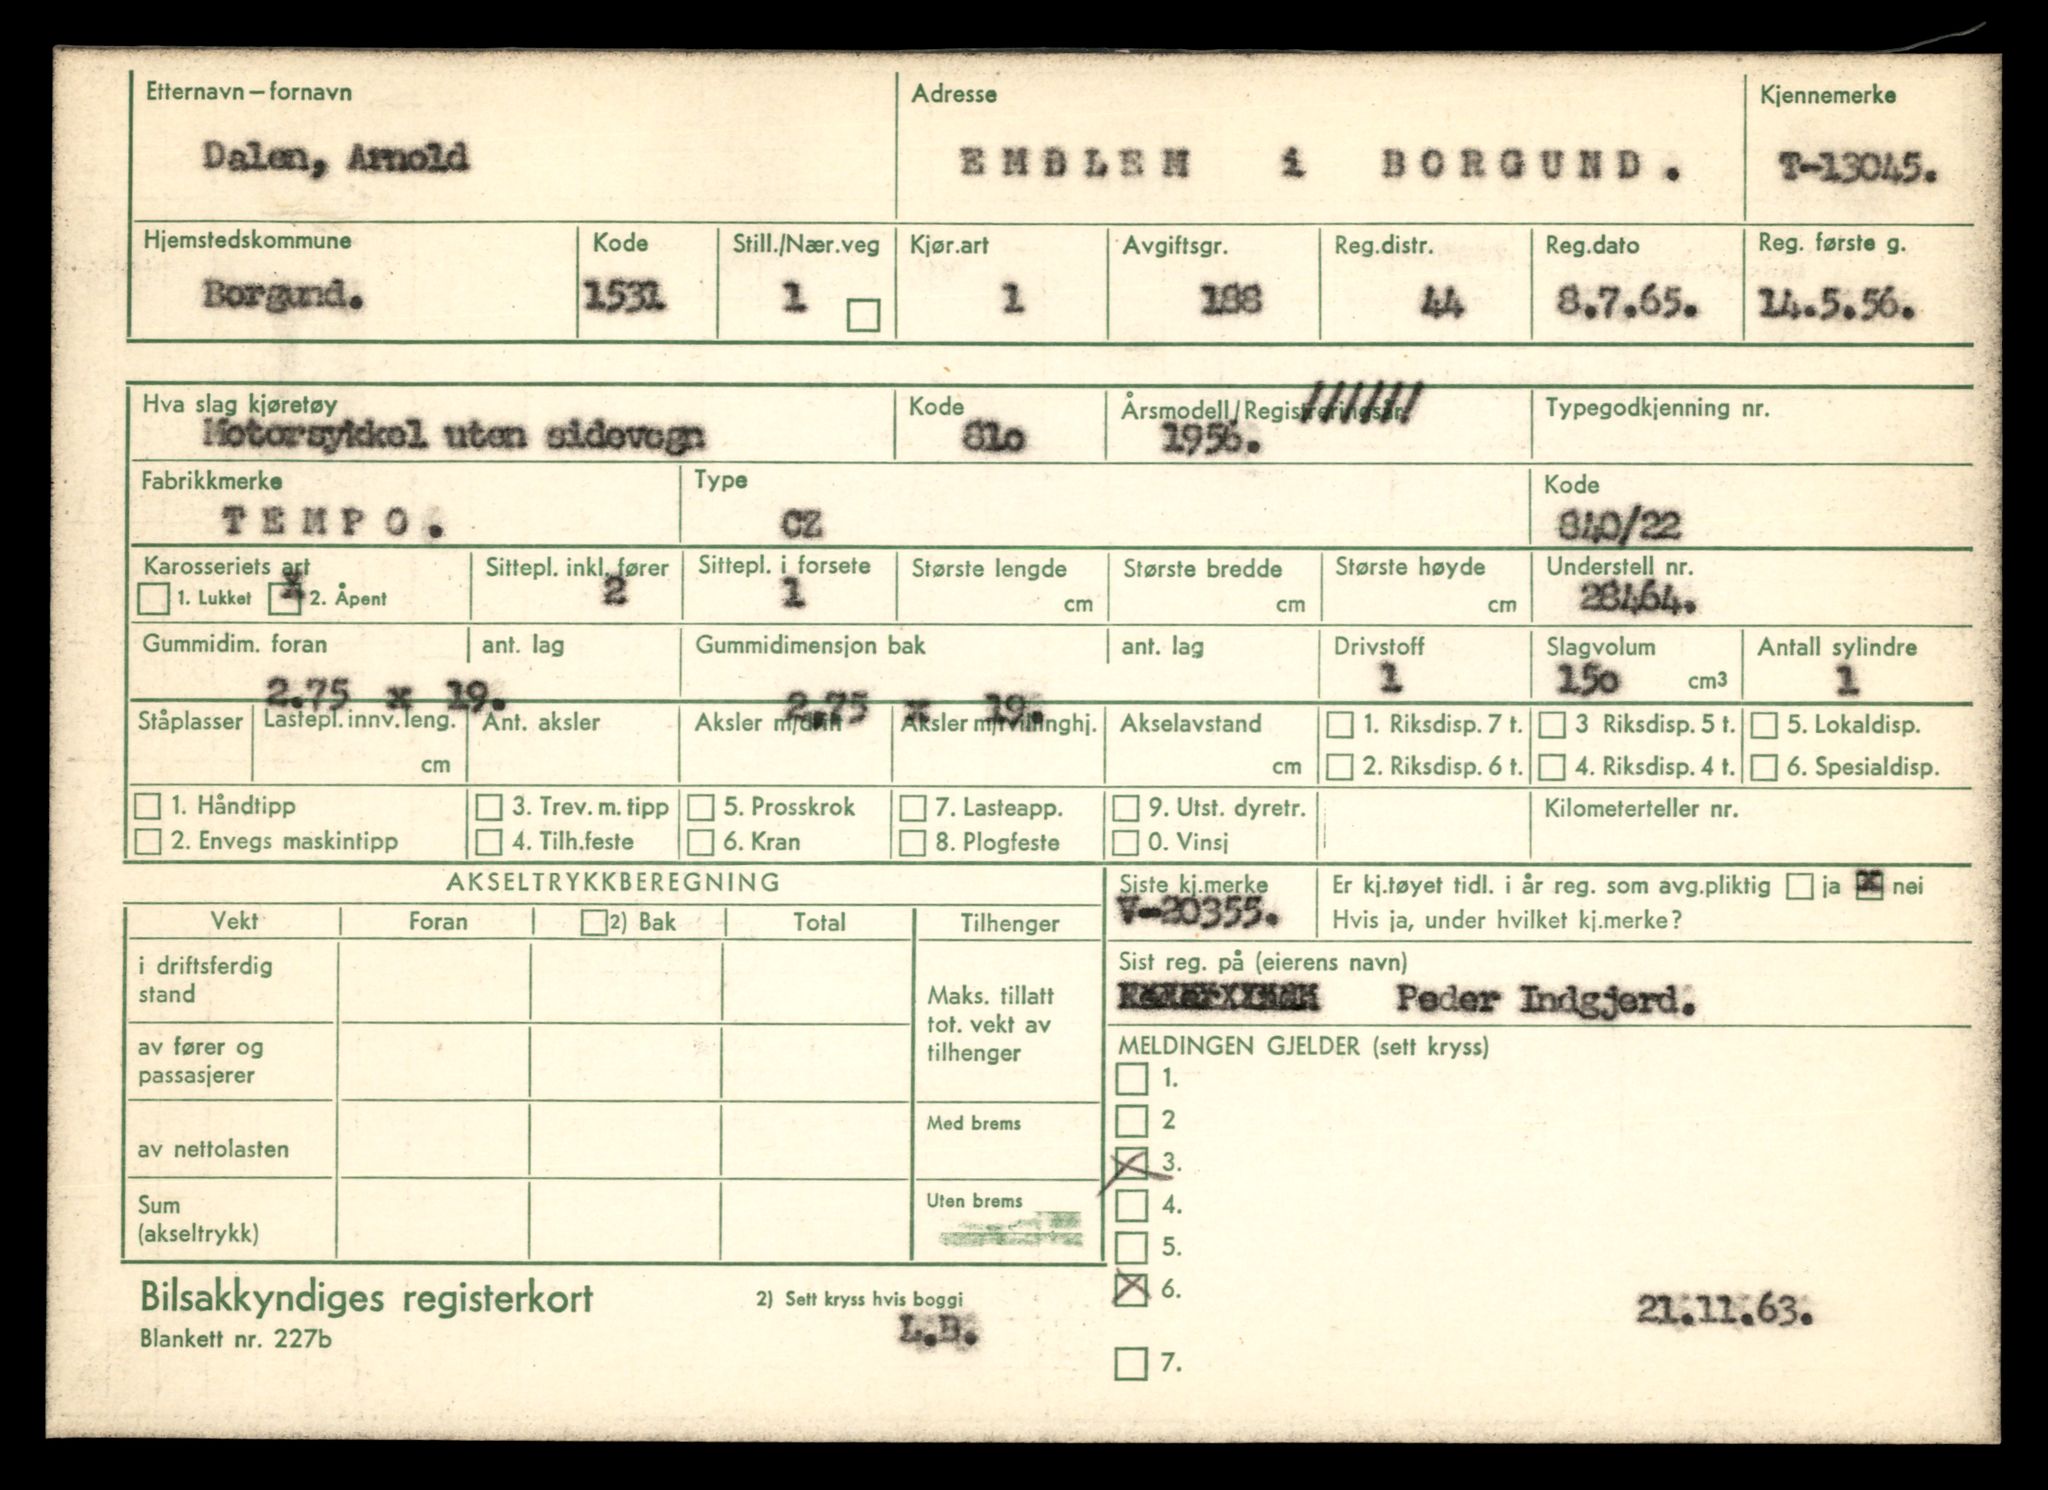 Etternavn – fornavn Adresse Kjennemerke
Dalen, Arnold EMBLEM i BORGUND. T-13045.
Hjemstedskommune Kode Still./Nær.veg Kjør.art Avgiftsgr. Reg.distr. Reg.dato Reg. første g.
Borgund. 1531 1 1 188 44 8.7.65. 14.5.56.
Hva slag kjøretøy Kode Årsmodell/Registreringsår Typegodkjenning nr.
Motorsykkel uten sidevogn 81o 1956.
Fabrikkmerke Type Kode
TEMPO. CZ 840/22
Karosseriets art Sittepl. inkl. fører Sittepl. i forsete Største lengde Største bredde Største høyde Understell nr.
1. Lukket x 2. Åpent 2 1 cm cm cm 28464.
Gummidim. foran ant. lag Gummidimensjon bak ant. lag Drivstoff Slagvolum Antall sylindre
2.75 x 19. 2.75 x 19. 1 150 cm3 1
Ståplasser Lastepl. innv. leng. Ant. aksler Aksler m/drift Aksler m/tvillinghj. Akselavstand 1. Riksdisp. 7 t. 3 Riksdisp. 5 t. 5. Lokaldisp.
cm cm 2. Riksdisp. 6 t. 4. Riksdisp. 4 t. 6. Spesialdisp.
1. Håndtipp 3. Trev. m. tipp 5. Prosskrok 7. Lasteapp. 9. Utst. dyretr. Kilometerteller nr.
2. Envegs maskintipp 4. Tilh.feste 6. Kran 8. Plogfeste 0. Vinsj
AKSELTRYKKBEREGNING Siste kj.merke Er kj.tøyet tidl. i år reg. som avg.pliktig ja x nei
V-20355. Hvis ja, under hvilket kj.merke?
Vekt Foran 2) Bak Total Tilhenger
Sist reg. på (eierens navn)
Peder Indgjerd.
i driftsferdig
stand
Maks. tillatt
tot. vekt av
tilhenger
av fører og
passasjerer
MELDINGEN GJELDER (sett kryss)
1.
2
3.
4.
5.
6.
7.
av nettolasten Med brems
Sum
(akseltrykk) Uten brems
Bilsakkyndiges registerkort 2) Sett kryss hvis boggi
L.B.
Blankett nr. 227b
21.11.63.